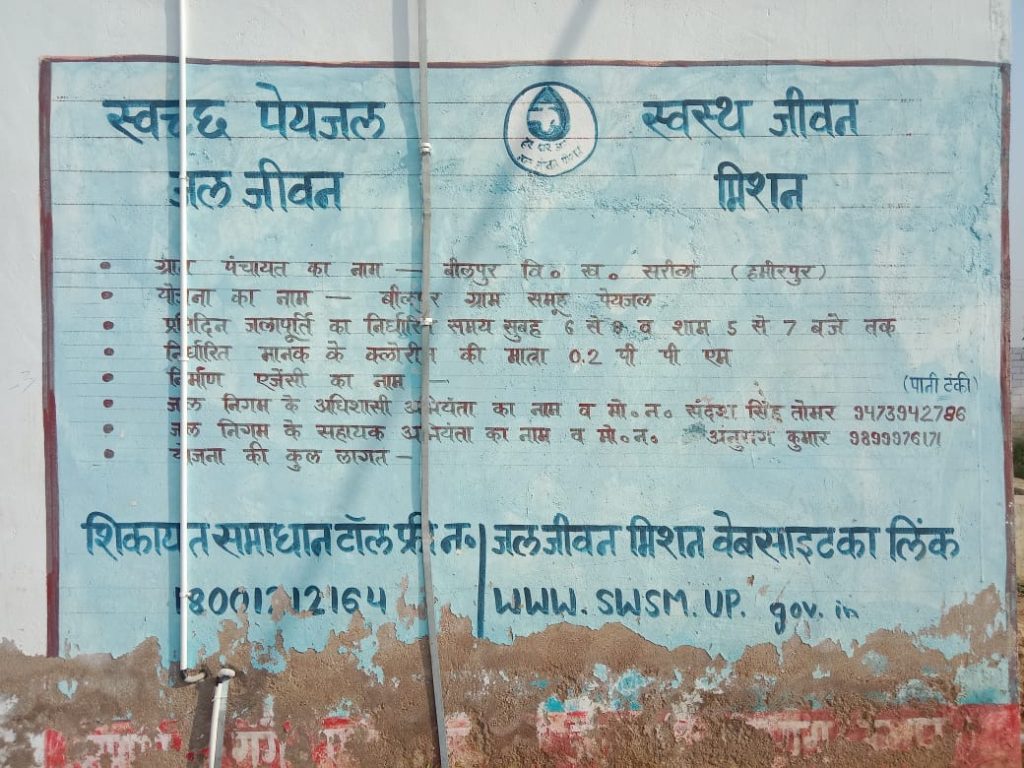 स्वच्छ पेयजल स्वस्थ जीवन
जल जीवन मिशन
हर घर जल
• ग्राम पंचायत का नाम — बीलपुर वि० ख० सरीला (हमीरपुर)
• योजना का नाम — बीलपुर ग्राम समूह पेयजल
• प्रतिदिन जलापूर्ति का निर्धारित समय सुबह 6 से 8 व शाम 5 से 7 बजे तक
• निर्धारित मानक के क्लोरीन की मात्रा 0.2 पी पी एम
• निर्माण एजेंसी का नाम — (पानी टंकी)
• जल निगम के अधिशासी अभियंता का नाम व मो०न० संदेश सिंह तोमर 9473942786
• जल निगम के सहायक अभियंता का नाम व मो०न० अनुराग कुमार 9899976171
• योजना की कुल लागत —
शिकायत समाधान टॉल फ्री न० | जल जीवन मिशन वेबसाइट का लिंक
18001212164 | WWW.SWSM.UP.gov.in